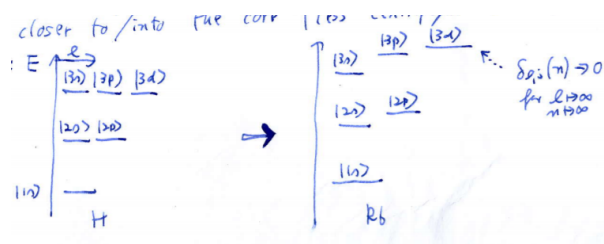 closer to/into the core (less
E l
|3s> |3p> |3d>
|2s> |2p>
|1s>
H
|3s> |3p> |3d>
|2s> |2p>
|1s>
Rb
δ_{l,j}(n) → 0
for l→∞
n→∞